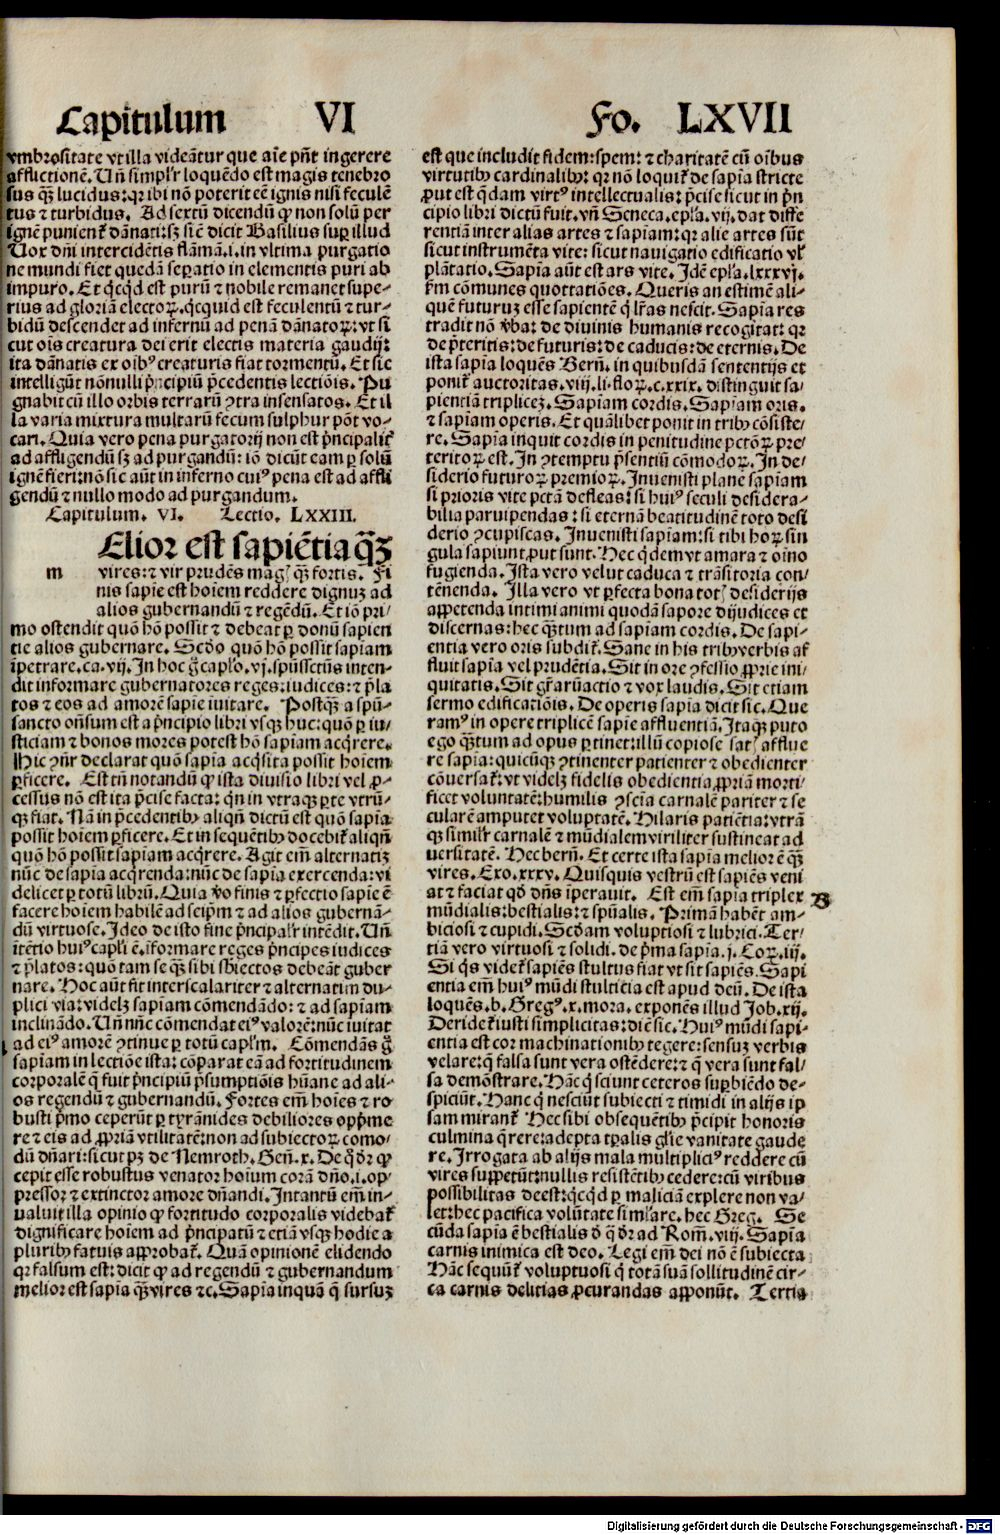 Capitulum VI Fo. LXVII
vmbrositate vt illa videãtur que aĩe pñt ingerere
afflictionẽ. Uñ simplr̃ loquẽdo est magis tenebro
sus qʒ̃ lucidus: qr ibi nõ poterit eẽ ignis nisi feculẽ
tus ⁊ turbidus. Ad sextũ dicendũ ꝙ non solũ per
ignẽ punient᷑ dãnati: sʒ siẽ dicit Basilius suꝑ illud
Uox dñi intercidẽtis flãmã. i. in vltima purgatio
ne mundi fiet quedã seꝑatio in elementis puri ab
impuro. Et qͥcqͥd est purũ ⁊ nobile remanet supe-
rius ad gloriã electoꝝ. qͥcquid est feculentũ ⁊ tur-
bidũ descendet ad infernũ ad penã dãnatoꝝ: vt si
cut oĩs creatura dei erit electis materia gaudij:
ita dãnatis ex oĩbꝰ creaturis fiat tormentũ. Et sic
intelligũt nõnulli pͥncipiũ p̃cedentis lectiõis. Pu
gnabit cũ illo orbis terrarũ ꝯtra insensatos. Et il
la varia mixtura multarũ fecum sulphur põt vo-
cari. Quia vero pena purgatorij non est pͥncipalit᷑
ad affligendũ sʒ ad purgandũ: iõ dicũt eam ꝑ solũ
ignẽ fieri: nõ sic aũt in inferno cuiꝰ pena est ad affli
gendũ ⁊ nullo modo ad purgandum.
Capitulum. VI. Lectio. LXXIII.
Elior est sapiẽtia qʒ̃
m vires: ⁊ vir prudẽs magꝭ qʒ̃ fortis. Fi
nis sapie est hoĩem reddere dignuʒ ad
alios gubernandũ ⁊ regẽdũ. Et iõ pri-
mo ostendit quõ hõ possit ⁊ debeat ꝑ donũ sapien
tie alios gubernare. Scđo quõ hõ possit sapiam
ĩpetrare. ca. vij. In hoc g̃ capľo. vj. spũssctũs inten-
dit informare gubernatores reges: iudices: ⁊ p̃la
tos ⁊ eos ad amorẽ sapie ĩuitare. Postqʒ̃ a spũ-
sancto oñsum est a pͥncipio libri vsqʒ huc: quõ ꝑ iu-
sticiam ⁊ bonos mores potest hõ sapiam acqͥrere.
Hic ꝯñr declarat quõ sapia acqͥsita possit hoĩem
ꝑficere. Est tñ notandũ ꝙ ista diuisio libri vel ꝓ-
cessus nõ est ita p̃cise facta: qñ in vtraqʒ ꝑte vtrũ-
qʒ fiat. Nã in p̃cedentibꝰ aliqñ dictũ est quõ sapia
possit hoĩem ꝑficere. Et in sequẽtibꝰ docebit᷑ aliqñ
quõ hõ possit sapiam acqͥrere. Agit em̃ alternatiʒ
nũc de sapia acqͥrenda: nũc de sapia exercenda: vi
delicet ꝑ totũ librũ. Quia v̊o finis ⁊ ꝑfectio sapie ẽ
facere hoĩem habilẽ ad seip̃m ⁊ ad alios gubernã-
dũ virtuose. Ideo de isto fine pͥncipalr̃ intẽdit. Uñ
ĩtẽtio huiꝰ capľi ẽ. ĩformare reges pͥncipes iudices
⁊ p̃latos: quõ tam se qʒ̃ sibi sb̃iectos debeãt guber
nare. Hoc aũt fit interscalariter ⁊ alternatim du-
plici via: videlʒ sapiam cõmendãdo: ⁊ ad sapiam
inclinãdo. Uñ nũc cõmendat eiꝰ valorẽ: nũc ĩuitat
ad eiꝰ amorẽ ꝯtinue ꝑ totũ capľm. Cõmendãs g̃
sapiam in lectiõe ista: cõparat eã ad fortitudinem
corporalẽ q̃ fuit pͥncipiũ p̃sumptiõis hũane ad ali-
os regendũ ⁊ gubernandũ. Fortes em̃ hoĩes ⁊ ro
busti pͥmo ceperũt ꝑ tyrãnides debiliores oppͥme
re ⁊ eis ad ꝓpriã vtilitatẽ: non ad subiectoꝝ como-
dũ dñari: sicut pʒ de Nemroth. Geñ. x. De q̊ dr̃ ꝙ
cepit esse robustus venator hoĩum corã dño. i. op-
pressor ⁊ extinctor amore dñandi. Intantũ em̃ in-
ualuit illa opinio ꝙ fortitudo corporalis videbat᷑
dignificare hoĩem ad pͥncipatũ ⁊ etiã vsqʒ hodie a
pluribꝰ fatuis approbat᷑. Quã opinionẽ elidendo
qr falsum est: dicit ꝙ ad regendũ ⁊ gubernandum
melior est sapia qʒ̃ vires ⁊c. Sapia inquã q̃ sursuʒ
est que includit fidem: spem: ⁊ charitatẽ cũ oĩbus
virtutibꝰ cardinalibꝰ: qr nõ loquit᷑ de sapia stricte
ꝓut est q̃dam virtꝰ intellectualis: p̃cise sicut in pͥn
cipio libri dictũ fuit. vñ Seneca. epľa. vij. dat diffe
rentiam inter alias artes ⁊ sapiam: qr alie artes sũt
sicut instrumẽta vite: sicut nauigatio edificatio vľ
plãtatio. Sapia aũt est ars vite. Idẽ epľa. lxxxvj.
ẜm cõmunes quottatiões. Queris an estimẽ ali-
quẽ futuruʒ esse sapientẽ qͥ lr̃as nescit. Sapia res
tradit nõ v̊ba: de diuinis humanis recogitat: qr
de p̃teritis: de futuris: de caducis: de eternis. De
ista sapia loquẽs Berñ. in quibusdã sententijs et
ponit᷑ auctoritas. viij. li. floꝝ. c. xxix. distinguit sa-
pientiã tripliceʒ. Sapiam cordis. Sapiam oris.
⁊ sapiam operis. Et quãlibet ponit in tribꝰ cõsiste-
re. Sapia inquit cordis in penitudine pctõꝝ pre-
teritoꝝ est. In ꝯtemptu p̃sentiũ cõmodoꝝ. In de-
siderio futuroꝝ premioꝝ. Inuenisti plane sapiam
si prioris vite pctã defleas: si huiꝰ seculi desidera-
bilia paruipendas: si eternã beatitudinẽ toto desi
derio ꝯcupiscas. Inuenisti sapiam: si tibi hoꝝ sin
gula sapiunt ꝓut sunt. Hec qͥdem vt amara ⁊ oĩno
fugienda. Ista vero velut caduca ⁊ trãsitoria con-
tẽnenda. Illa vero vt ꝑfecta bona totꝭ desiderijs
appetenda intimi animi quodã sapore dijudices et
discernas: hec qʒ̃tum ad sapiam cordis. De sapi-
entia vero oris subdit᷑. Sane in his tribꝰ verbis af
fluit sapia vel prudẽtia. Sit in ore ꝯfessio ꝓprie ini-
quitatis. Sit gr̃arũ actio ⁊ vox laudis. Sit etiam
sermo edificatiõis. De operis sapia dicit sic. Que
ramꝰ in opere triplicẽ sapie affluentiã. Itaqʒ puto
ego qʒ̃tum ad opus ꝑtinet: illũ copiose satꝭ afflue
re sapia: quicũqʒ ꝯtinenter patienter ⁊ obedienter
cõuersat᷑: vt videlʒ fidelis obedientia ꝓpriã morti-
ficet voluntatẽ: humilis ꝯscĩa carnalẽ pariter ⁊ se
cularẽ amputet voluptatẽ. Hilaris patiẽtia: vtrã
qʒ simil̃r carnalẽ ⁊ mũdialem viriliter sustineat ad
uersitatẽ. Hec berñ. Et certe ista sapia melior ẽ qʒ̃
vires. Exo. xxxv. Quisquis vestrũ est sapiẽs veni
at ⁊ faciat qđ dñs ĩperauit. Est em̃ sapia triplex B
mũdialis: bestialis: ⁊ spũalis. Primã habẽt am-
biciosi ⁊ cupidi. Scđam voluptiosi ⁊ lubrici. Ter-
tiã vero virtuosi ⁊ solidi. de pͥma sapia. j. Coꝝ. iij.
Si qͥs videt᷑ sapiẽs stultus fiat vt sit sapiẽs. Sapi
entia em̃ huiꝰ mũdi stultitia est apud deũ. De ista
loquẽs. b. Gregꝰ. x. mora. exponẽs illud Job. xij.
Deridet᷑ iusti simplicitas: dicẽ sic. Huiꝰ mũdi sapi-
entia est cor machinationibꝰ tegere: sensuʒ verbis
velare: q̃ falsa sunt vera ostẽdere: ⁊ q̃ vera sunt fal-
sa demõstrare. Hãc qͥ sciunt ceteros suꝑbiẽdo de-
spiciũt. Hanc qͥ nesciũt subiecti ⁊ timidi in alijs ip
sam mirant᷑ Hec sibi obsequẽtibꝰ p̃cipit honoris
culmina q̃rere: adepta tꝑalis gľie vanitate gaude
re. Irrogata ab alijs mala multipliciꝰ reddere cũ
vires suppetũt: nullis resistẽtibꝰ cedere: cũ viribus
possibilitas deest: qͥcqͥd ꝑ maliciã explere non va-
let: hec pacifica volũtate simľare. hec Greg. Se
cũda sapia ẽ bestialis đ q̊ dr̃ ad Rom̃. viij. Sapia
carnis inimica est deo. Legi em̃ dei nõ ẽ subiecta
Hãc sequũt᷑ voluptuosi qͥ totã suã sollitudinẽ cir-
ca carnis delitias ꝓcurandas apponũt. Tertia
Digitalisierung gefördert durch die Deutsche Forschungsgemeinschaft - DFG